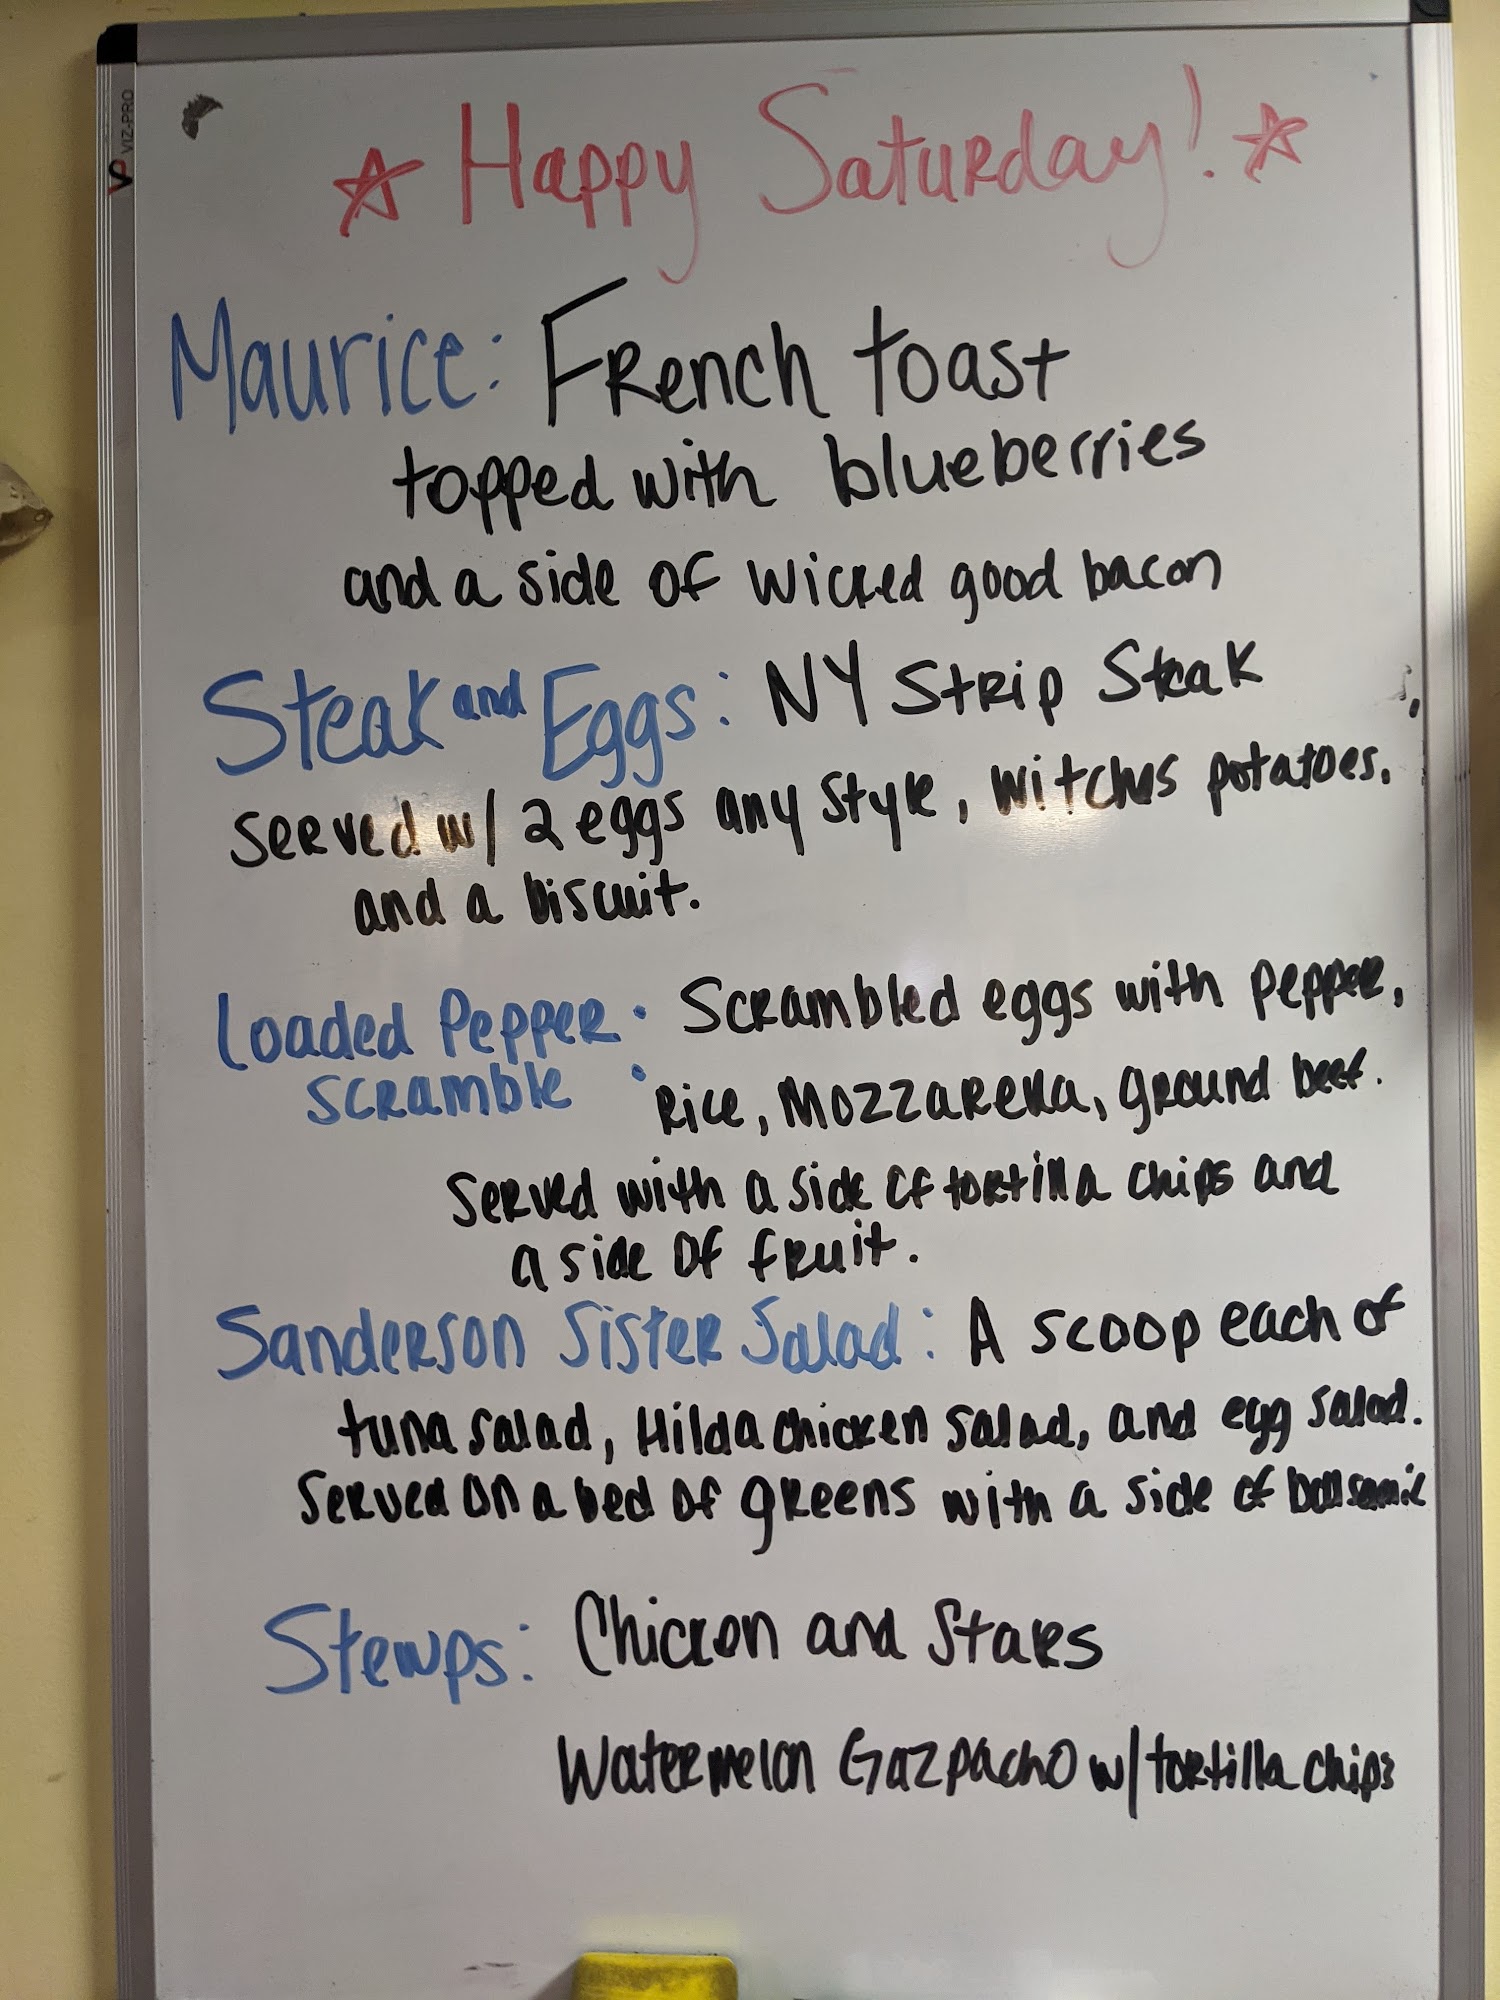 VP VIZ-PRO
☆ Happy Saturday! ☆
Maurice: French toast
topped with blueberries
and a side of wicked good bacon
Steak and Eggs: NY Strip Steak
served w/ 2 eggs any style, witches potatoes,
and a biscuit.
Loaded Pepper : Scrambled eggs with pepper,
scramble rice, mozzarella, ground beef.
Served with a side of tortilla chips and
a side of fruit.
Sanderson Sister Salad: A scoop each of
tuna salad, Hilda chicken salad, and egg salad.
Served on a bed of greens with a side of balsamic
Stewps: Chicken and Stars
Watermelon Gazpacho w/ tortilla chips